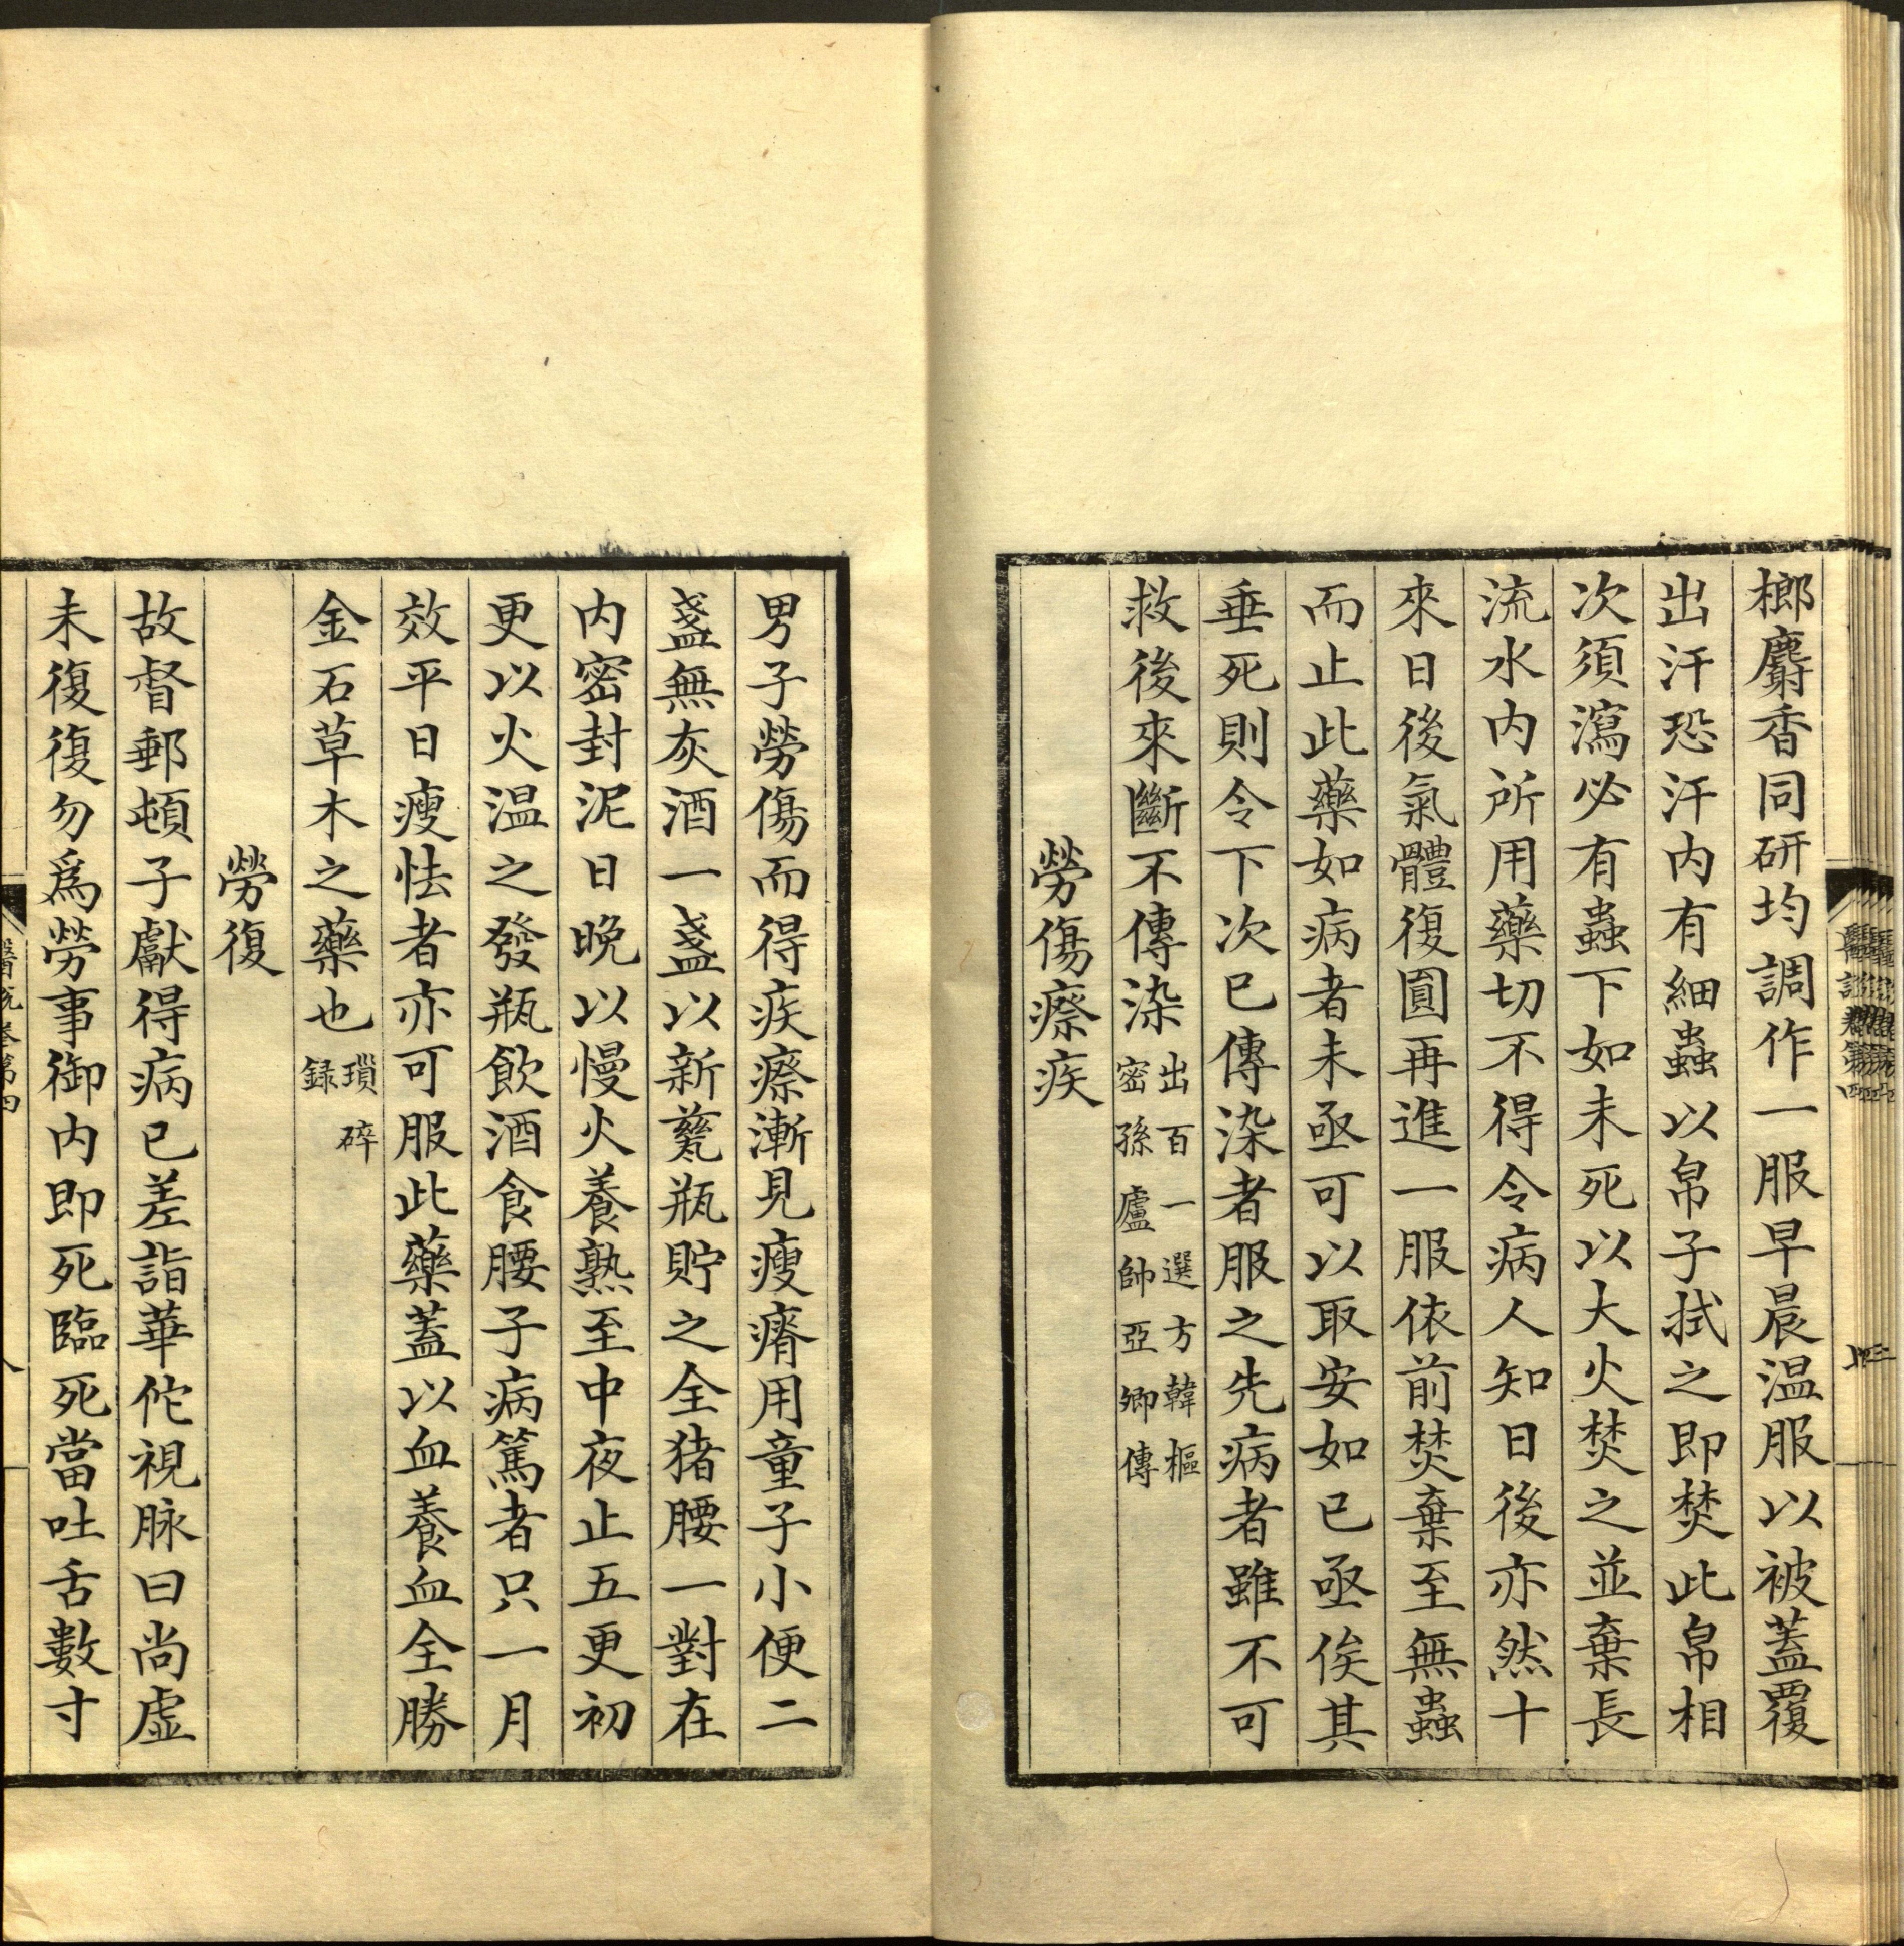 榔麝香同研均調作一服早晨温服以被蓋覆
出汗恐汗内有細蟲以帛子拭之即焚此帛相
次須瀉必有蟲下如未死以大火焚之並棄長
流水内所用藥切不得令病人知日後亦然十
來日後氣體復圓再進一服依前焚棄至無蟲
而止此藥如病者未亟可以取安如已亟俟其
垂死則令下次已傳染者服之先病者雖不可
救後來斷不傳染出百一選方韓樞
密孫盧帥亞卿傳
勞傷瘵疾
男子勞傷而得疾瘵漸見瘦瘠用童子小便二
盞無灰酒一盞以新甆瓶貯之全猪腰一對在
内密封泥日晚以慢火養熟至中夜止五更初
更以火温之發瓶飲酒食腰子病篤者只一月
效平日瘦怯者亦可服此藥蓋以血養血全勝
金石草木之藥也瑣碎
録
勞復
故督郵頓子獻得病已差詣華佗視脉曰尚虚
未復復勿爲勞事御内即死臨死當吐舌數寸
醫説卷第四